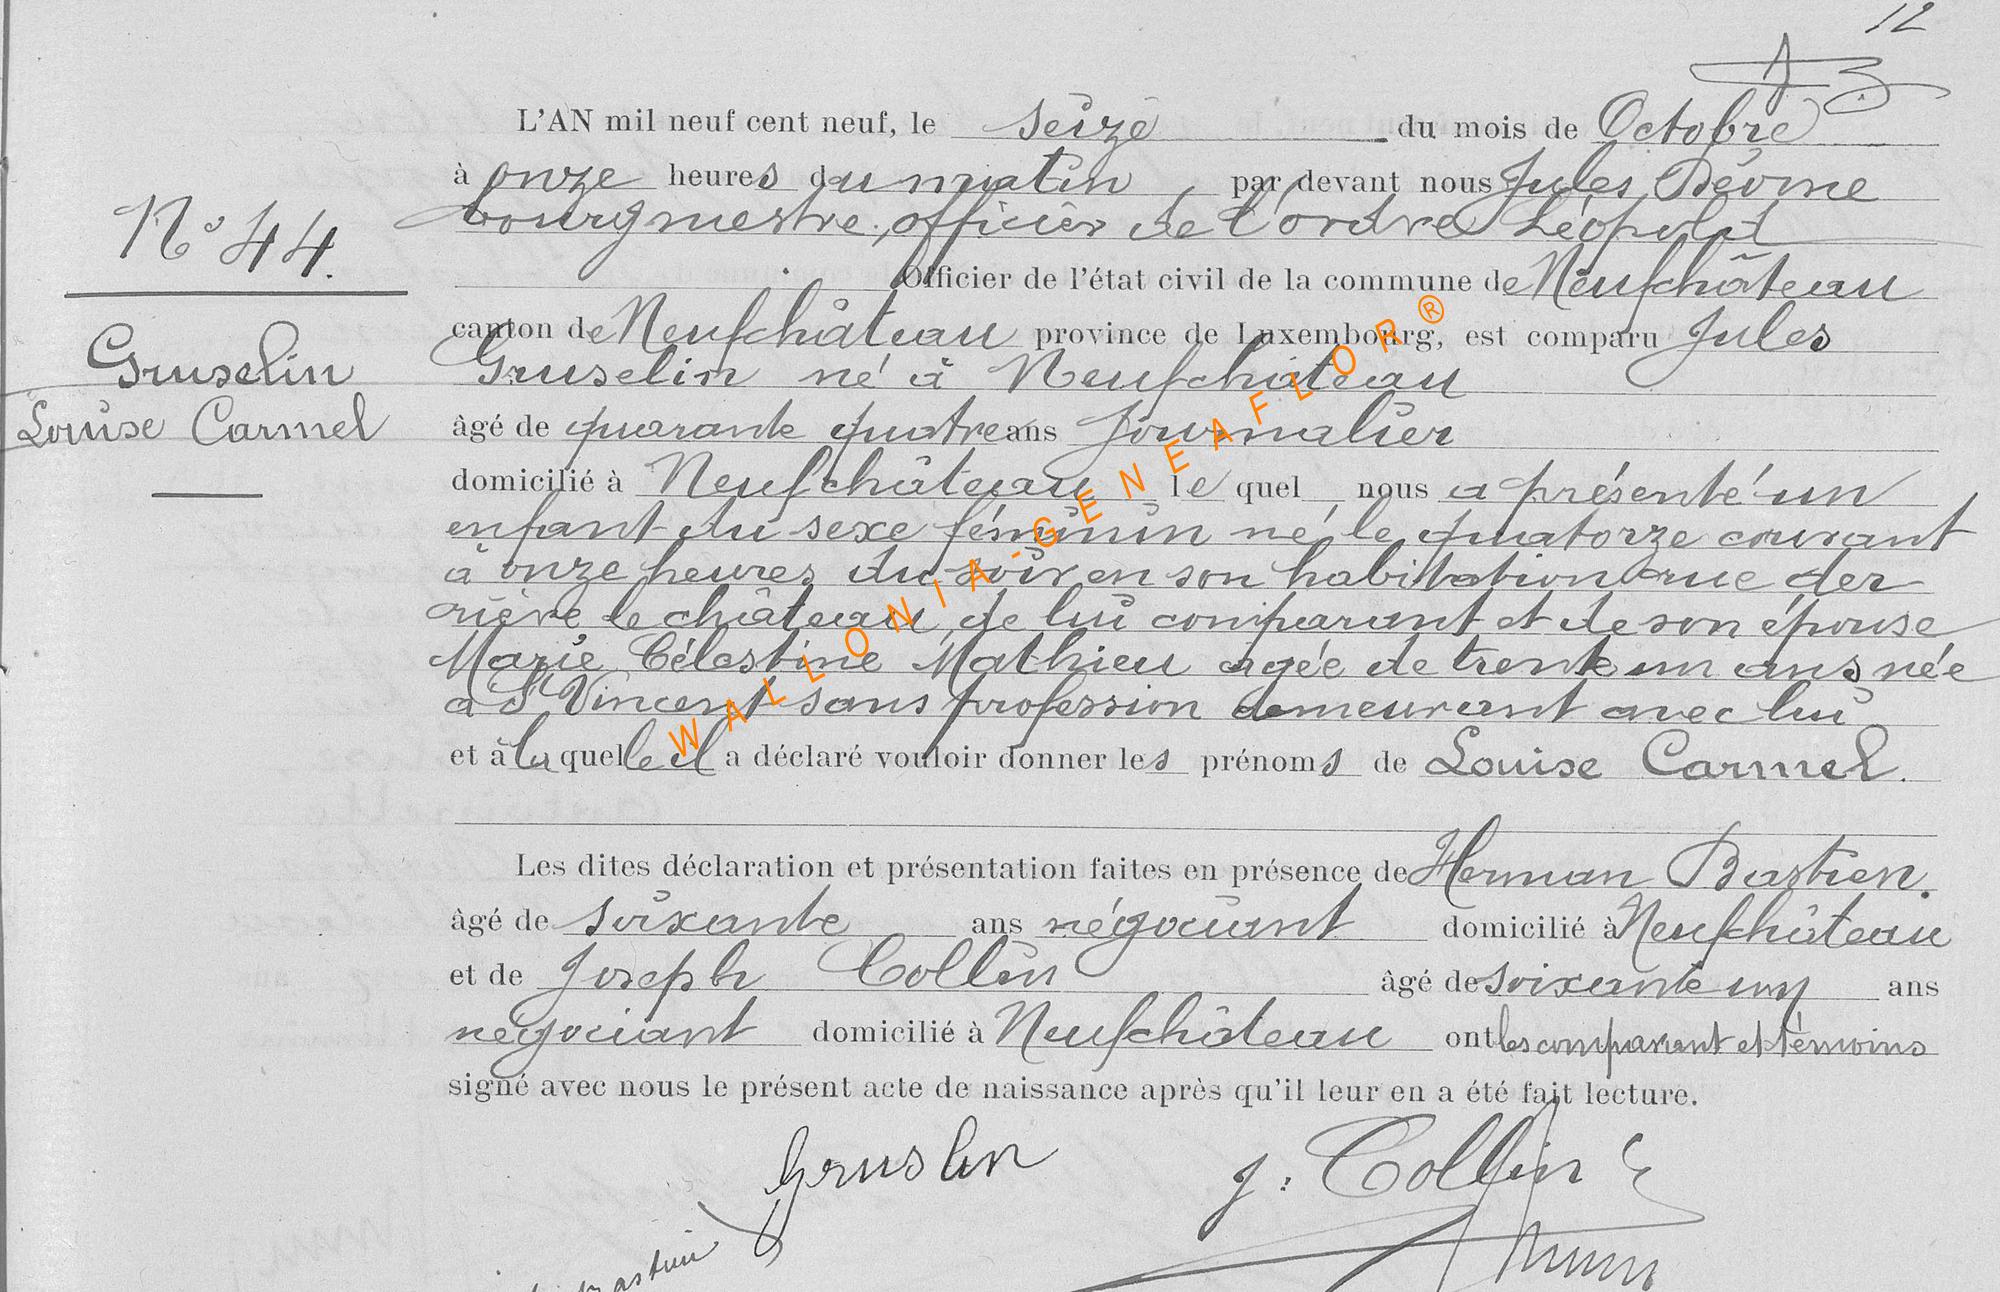 12
L'AN mil neuf cent neuf, le seize du mois de Octobre
à onze heures du matin, par devant nous Jules
bourgmestre, officier de l'ordre Léopold
Officier de l'état civil de la commune de Neufchâteau
canton de Neufchâteau province de Luxembourg, est comparu Jules
Gruselin né à Neufchâteau
âgé de quarante quatre ans Journalier
domicilié à Neufchâteau le quel nous a présenté un
enfant du sexe féminin né le quatorze courant
à onze heures du soir en son habitation rue der
rière le château, de lui comparant et de son épouse
Marie Célestine Mathieu agée de trente un ans née
a St Vincent sans profession demeurant avec lui
et à la quelle il a déclaré vouloir donner les prénoms de Louise Carmel.
Les dites déclaration et présentation faites en présence de Herman Bastien.
âgé de soixante ans négociant domicilié à Neufchâteau
et de Joseph Collin âgé de soixante un ans
négociant domicilié à Neufchâteau ont les comparant et témoins
signé avec nous le présent acte de naissance après qu'il leur en a été fait lecture.
N° 44.
Gruselin
Louise Carmel
Gruslin
J. Collin
Bastien
WALLONIA-GENEAFLOR®